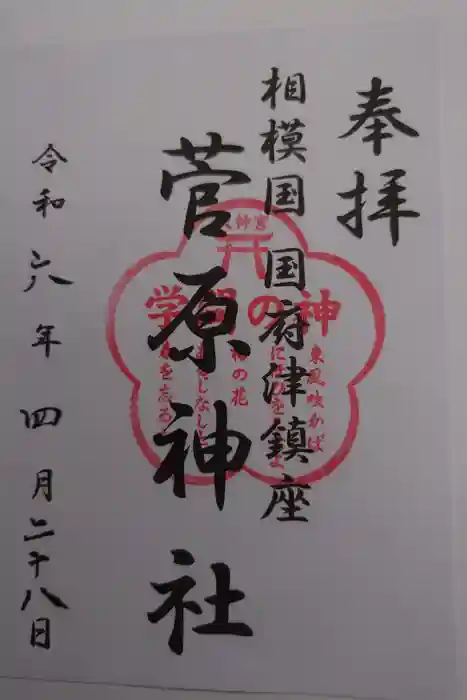 奉拝
相模国 国府津鎮座
菅原神社
令和六年 四月二十八日
学問の神
東風吹かば
梅の花